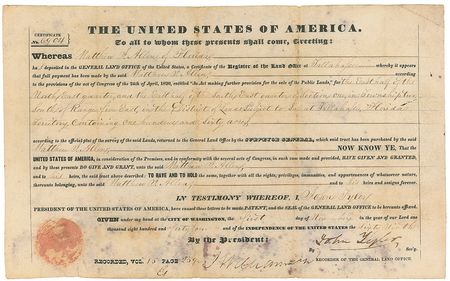 THE UNITED STATES OF AMERICA.
CERTIFICATE
No.
To all to whom these presents shall come, Greeting:
WHEREAS Matthew R. Allen, of Florida
deposited in the GENERAL LAND OFFICE of the United States, a Certificate of the Register of the Land Office at Tallahassee whereby it appears
that full payment has been made by the said Matthew R. Allen according to
the provisions of the act of Congress of the 24th of April, 1820, entitled "An Act making further provision for the sale of the Public Lands," for the East half of the
North East quarter, and the East half of the South East quarter, of Section in Township two
South, of Range East, in the District of Lands Subject to Sale at Tallahassee, Florida
Territory, Containing one hundred and sixty acres
according to the official plat of the survey of the said Lands, returned to the General Land Office by the SURVEYOR GENERAL, which said tract has been purchased by the said
Matthew R. Allen NOW KNOW YE, That the
UNITED STATES OF AMERICA, in consideration of the Premises, and in conformity with the several acts of Congress, in such case made and provided, HAVE GIVEN AND GRANTED,
and by these presents DO GIVE AND GRANT, unto the said Matthew R. Allen
and to his heirs, the said tract above described: TO HAVE AND TO HOLD the same, together with all the rights, privileges, immunities, and appurtenances of whatsoever nature,
thereunto belonging, unto the said Matthew R. Allen and to his heirs and assigns forever.
IN TESTIMONY WHEREOF, I, John Tyler
PRESIDENT OF THE UNITED STATES OF AMERICA, have caused these Letters to be made PATENT, and the SEAL of the GENERAL LAND OFFICE to be hereunto affixed.
GIVEN under my hand at the CITY OF WASHINGTON, the first day of in the year of our Lord one
thousand eight hundred and forty four and of the INDEPENDENCE OF THE UNITED STATES the sixty
By the President: John Tyler
By Sec'y.
RECORDED, VOL. 15 PAGE RECORDER OF THE GENERAL LAND OFFICE.